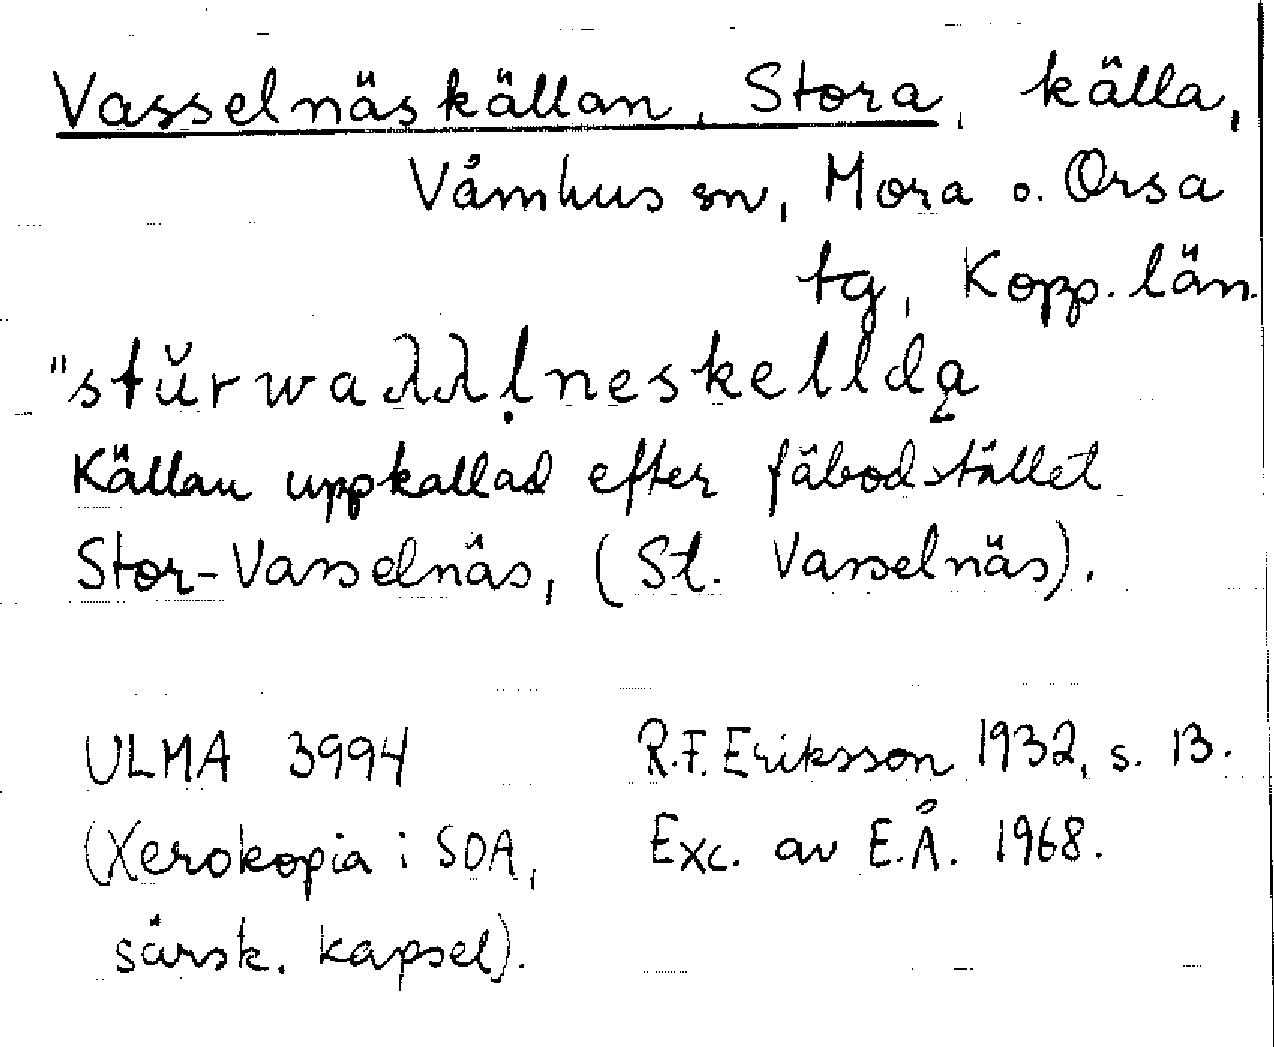 Vasselnäskällan, Stora, källa,
Våmhus sn, Mora o. Orsa
tg, Kopp. län.
"stŭrwaλλḷneskelldą
Källan uppkallad efter fäbodstället
Stor-Vasselnäs, (St. Vasselnäs).
ULMA 3994 R.F. Eriksson 1932, s. 13.
(Xerokopia i SOA, Exc. av E.Å. 1968.
särsk. kapsel).